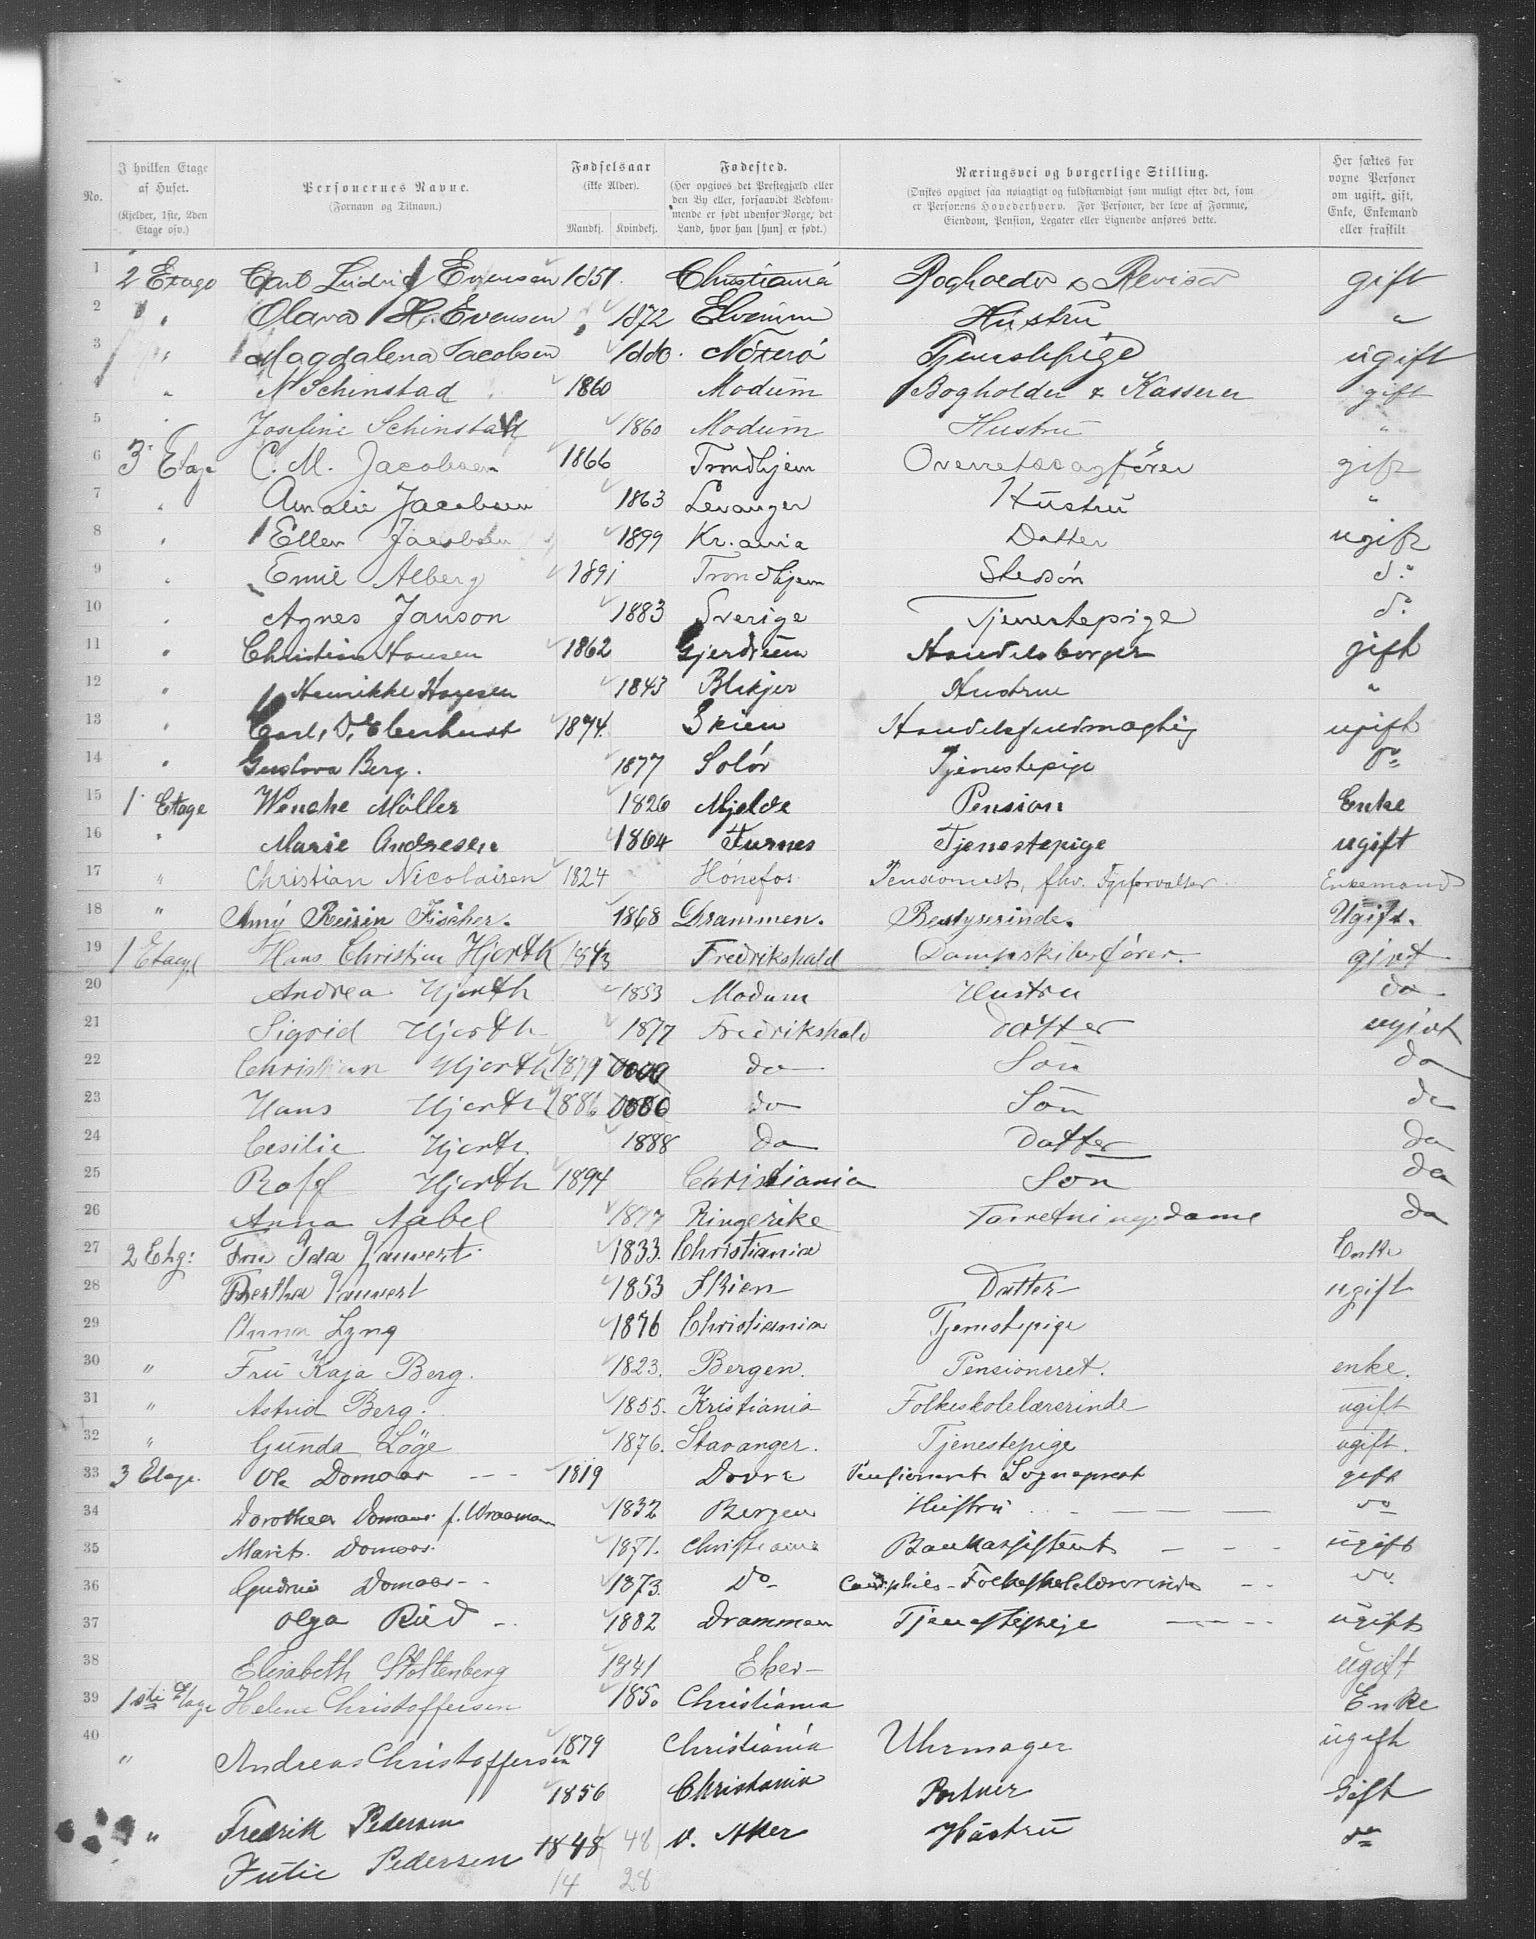 No.
I hvilken Etage af Huset.
(Kjelder, 1ste, 2den Etage osv.)
Personernes Navne.
(Fornavn og Tilnavn.)
Fødselsaar
(ikke Alder).
Mandkj. Kvindekj.
Fødested.
(Her opgives det Prestegjæld eller den By eller, forsaavidt Vedkommende er født udenfor Norge, det Land, hvor han [hun] er født.)
Næringsvei og borgerlige Stilling.
(Ønskes opgivet saa nøiagtigt og fuldstændigt som muligt efter det, som er Personens Hovederhverv. For Personer, der leve af Formue, Eiendom, Pension, Legater eller Lignende anføres dette.
Her sættes for vorne Personer om ugift, gift, Enke, Enkemand eller fraskilt
1 2 Etage Carl Ludvig Evensen 1851. Christiania Bogholder & Revisor gift
2 " Olava H. Evensen 1872 Elverum Hustru "
3 " Magdalena Jacobsen 1880. Nøterø Tjenstepige ugift
4 " N Schinstad 1860 Modum Bogholder & Kasserer gift
5 " Josefine Schinstad 1860 Modum Hustru "
6 3 Etage C. M. Jacobsen 1866 Trondhjem Overretssagfører gift
7 " Amalie Jacobsen 1863 Levanger Hustru "
8 " Ellen Jacobsen 1899 Kr.ania Datter ugift
9 " Emil Alberg 1891 Trondhjem Stedsøn do
10 " Agnes Janson 1883 Sverige Tjenestepige do
11 " Christian Hansen 1862 Gjerdrum Handelsborger gift
12 " Henrikke Hansen 1843 Blakjer Hustrue "
13 " Carl, D, Eberhardt 1874. Skien Handelsfuldmægtig ugift
14 " Gustava Berg. 1877 Solør Tjenestepige do
15 1 Etage Wenche Møller 1826 Mjelde Pension Enke
16 " Marie Andresen 1864 Furnes Tjenestepige ugift
17 " Christian Nicolaisen 1824 Hønefos Pensionist, fhv. Enkemand
18 " Amy Fischer. 1868 Drammen. Bestyrerinde. Ugift.
19 1 Etage Hans Christian Hjorth 1843 Fredrikshald Dampskibsfører. givt
20 Andrea Hjorth 1853 Modum Hustru do
21 Sigrid Hjorth 1877 Fredrikshald datter ugivt
22 Christian Hjorth 1879 do Søn do
23 Hans Hjorth 1886 1886 do Søn do
24 Cesilie Hjorth 1888 do Datter do
25 Rolf Hjorth 1894 Christiania Søn do
26 Anna Nabel 1877 Ringerike Forretningsdame do
27 2 Etg: Fru Ida Vauvert. 1833. Christiania Enke
28 Berthe Vauvert 1853 Skien Datter ugift
29 Anna Lyng 1876 Christiania Tjenestepige
30 " Fru Kaja Berg. 1823. Bergen. Pensioneret. enke.
31 " Astrid Berg. 1855. Kristiania Folkeskolelærerinde ugift
32 " Gunda Løge 1876. Stavanger. Tjenestepige ugift.
33 3 Etage. Ole Domaas 1819 Dovre Pensioneret Sogneprest gift
34 Dorothea Domaas f. 1832 Bergen Hustru do
35 Marit. Domaas. 1871. Christiania Bankassistent ugift
36 Gudrun Domaas 1873. Do Cand.philos - Folkeskolelærerinde do.
37 Olga Rud 1882 Drammen Tjenestepige ugift
38 Elisabeth Stoltenberg 1841 Eker ugift
39 1ste Etage Helene Christoffersen 1850 Christiania Enke
40 " Andreas Christoffersen 1879 Christiania Uhrmager ugift
" Fredrik Pedersen 1856 Christiania Portner Gift
Julie Pedersen 1848 48 V. Aker Hustru do
14 28